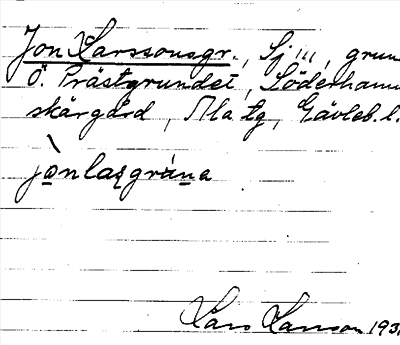 Jon Larssonsgr., Sj III, grun
Ö. Prästgrundet, Söderhamn
skärgård, Ala tg, Gävleb. l.
jònlasgrúna
Lars Larsson 193